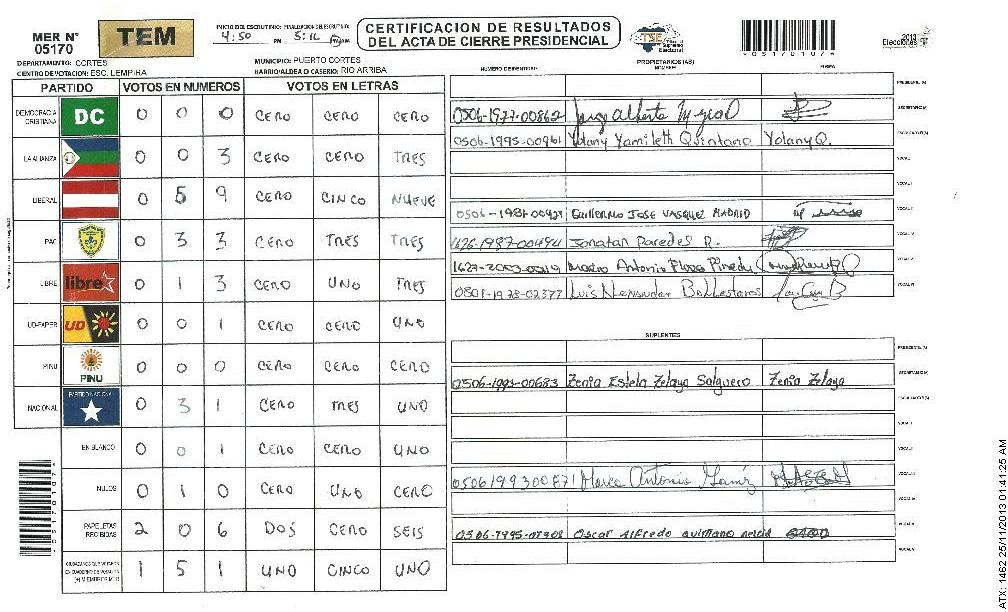 MER N° 05170
TEM
INICIO DEL ESCRUTINIO: FINALIZACION DEL ESCRUTINIO:
4:50 PM 5:16
CERTIFICACION DE RESULTADOS
DEL ACTA DE CIERRE PRESIDENCIAL
TSE Tribunal Supremo Electoral
2013 Elecciones
* 0 5 1 7 0 1 0 7 *
DEPARTAMENTO: CORTES
MUNICIPIO: PUERTO CORTES
CENTRO DE VOTACION: ESC. LEMPIRA
BARRIO/ALDEA O CASERIO: RIO ARRIBA
PARTIDO VOTOS EN NUMEROS VOTOS EN LETRAS
DEMOCRACIA CRISTIANA DC 0 0 0 CERO CERO CERO
LA ALIANZA 0 0 3 CERO CERO TRES
LIBERAL 0 5 9 CERO CINCO NUEVE
PAC 0 3 3 CERO TRES TRES
LIBRE libre 0 1 3 CERO UNO TRES
UD-FAPER UD 0 0 1 CERO CERO UNO
PINU PINU 0 0 0 CERO CERO CERO
NACIONAL PARTIDO NACIONAL 0 3 1 CERO TRES UNO
EN BLANCO 0 0 1 CERO CERO UNO
NULOS 0 1 0 CERO UNO CERO
PAPELETAS RECIBIDAS 2 0 6 DOS CERO SEIS
CIUDADANOS QUE VOTARON EN CUADERNO DE VOTACION (+) MIEMBROS MER 1 5 1 UNO CINCO UNO
PROPIETARIOS (AS)
NUMERO DE IDENTIDAD NOMBRE FIRMA
PRESIDENTE (A)
0506-1977-00862 Jorge Alberto SECRETARIO (A)
0506-1995-00961 Yolany Yamileth Quintano Yolany Q. ESCRUTADOR (A)
VOCAL I
VOCAL II
0506-1981-00927 GUILLERMO JOSE VASQUEZ MADRID VOCAL III
1626-1987-00494 Jonatan Paredes R. VOCAL IV
1627-2003-00219 Mario Antonio VOCAL V
0801-1978-02377 Luis VOCAL VI
SUPLENTES
PRESIDENTE (A)
0506-1995-00683 Zenia Estela Zelaya Salguero Zenia Zelaya SECRETARIO (A)
ESCRUTADOR (A)
VOCAL I
VOCAL II
0506199300871 Marco Antonio VOCAL III
VOCAL IV
0506-1995-01908 Oscar Alfredo VOCAL V
VOCAL VI
* 0 5 1 7 0 1 0 7 *
ATX: 1462 25/11/2013 01:41:25 AM